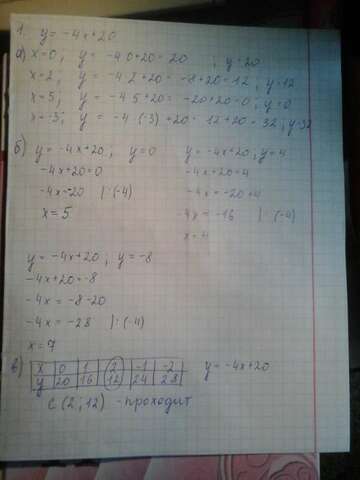 1. y = -4x+20
а) x=0; y = -4·0+20=20 ; y=20
x=2; y = -4·2+20=-8+20=12; y=12
x=5; y = -4·5+20=-20+20=0; y=0
x=-3; y = -4·(-3)+20= 12+20=32; y=32
б) y=-4x+20; y=0
-4x+20=0
-4x=-20 |:(-4)
x=5
y=-4x+20; y=4
-4x+20=4
-4x=-20+4
-4x=-16 |:(-4)
x=4
y=-4x+20; y=-8
-4x+20=-8
-4x=-8-20
-4x=-28 |:(-4)
x=7
в) x 0 1 2 -1 -2 y=-4x+20
y 20 16 12 24 28
C(2;12) - проходит